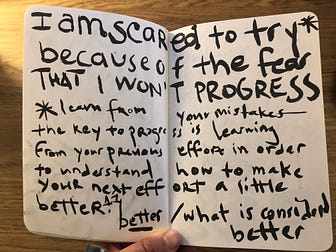 I am scared to try*
because of the fear
THAT I WON'T PROGRESS
* learn from your mistakes
the key to progress is learning
from your previous effort in order
to understand how to make
your next effort a little
better.
better / what is considerd
better